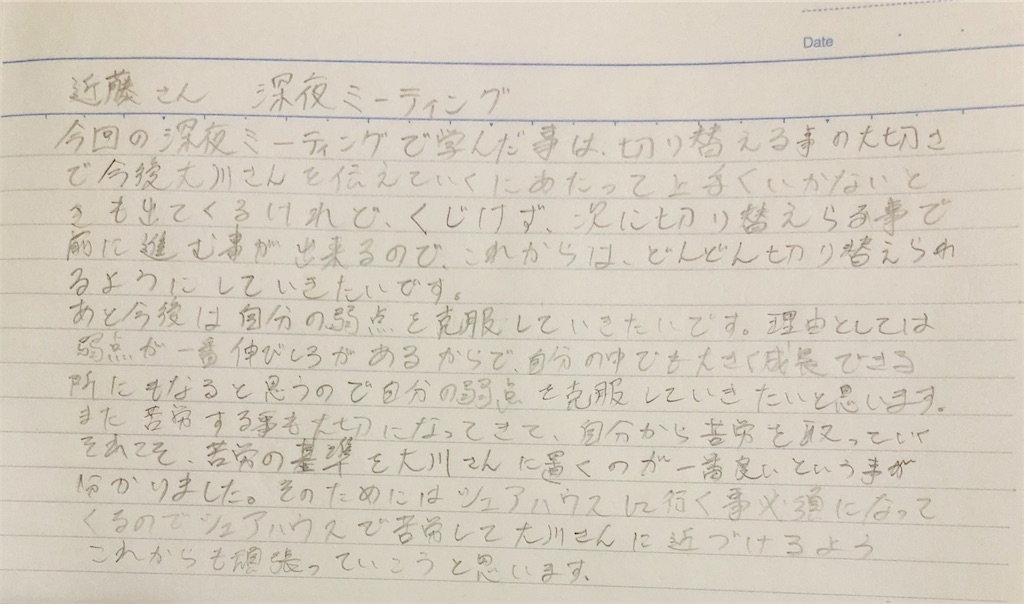 Date
近藤さん 深夜ミーティング
今回の深夜ミーティングで学んだ事は、切り替える事の大切さ
で今後大川さんを伝えていくにあたって上手くいかないと
きも出てくるけれど、くじけず、次に切り替えらる事で
前に進む事が出来るので、これからは、どんどん切り替えられ
るようにしていきたいです。
あと今後は自分の弱点を克服していきたいです。理由としては
弱点が一番伸びしろがあるからで、自分の中でも大きく成長できる
所にもなると思うので自分の弱点を克服していきたいと思います。
また苦労する事も大切になってきて、自分から苦労を取っていく
それこそ、苦労の基準を大川さんに置くのが一番良いという事が
分かりました。そのためにはシェアハウスに行く事必須になって
くるのでシェアハウスで苦労して大川さんに近づけるよう
これからも頑張っていこうと思います。